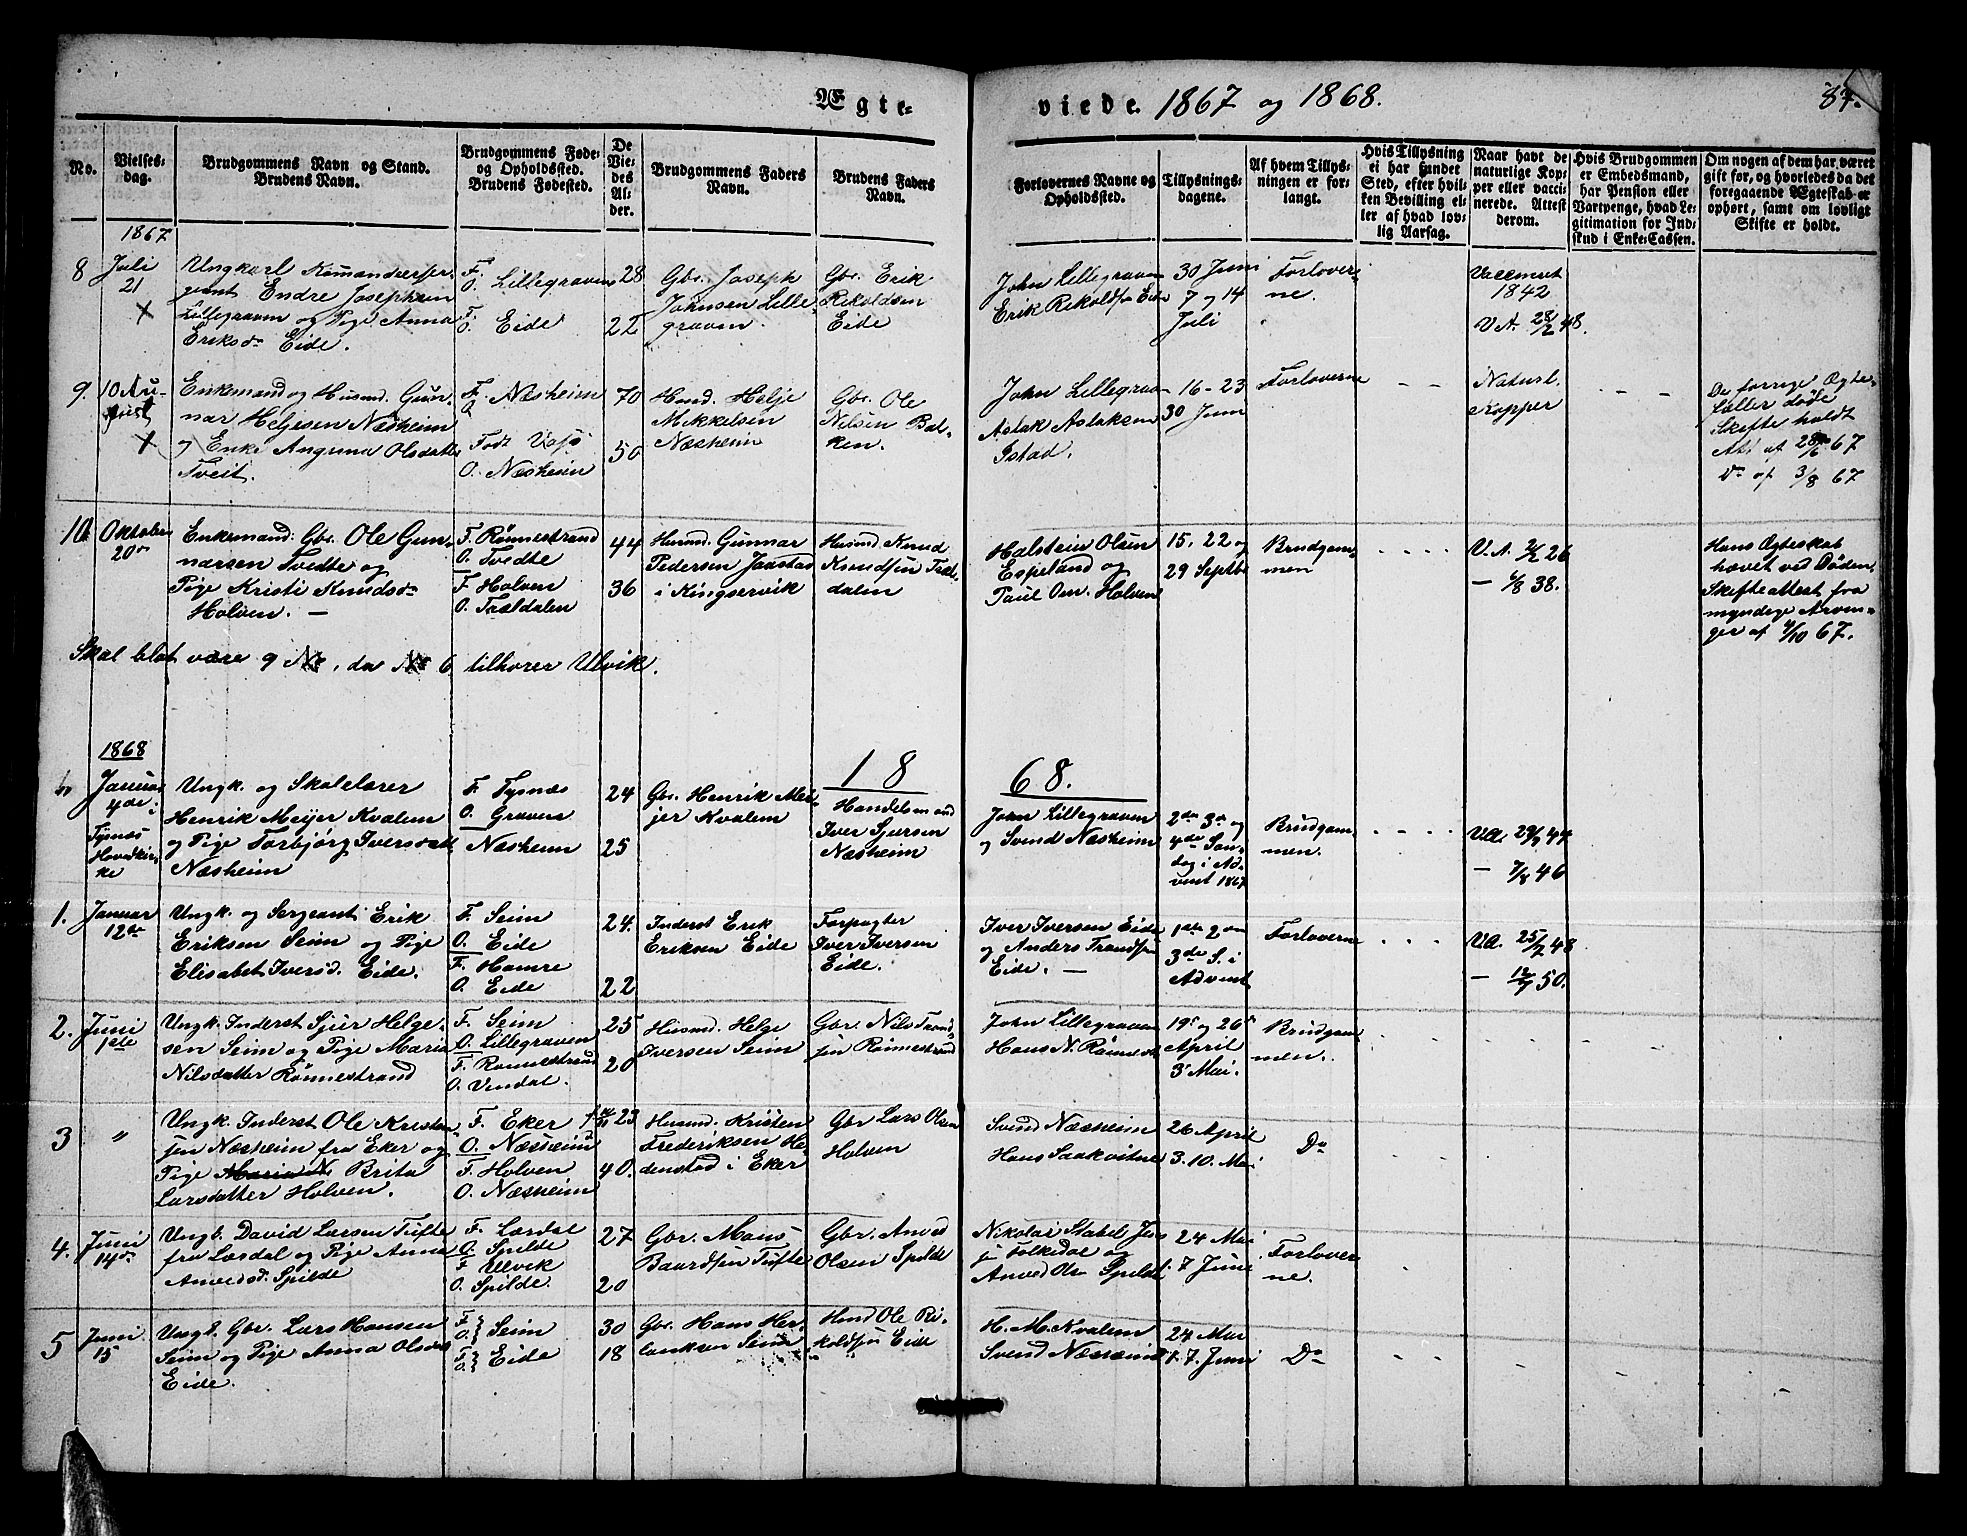 Ægte-
viede 1867 og 1868.
87.
No.
Vielses-
dag.
Brudgommens Navn og Stand.
Brudens Navn.
Brudgommens Føde-
og Opholdssted.
Brudens Fødested.
De
Vie-
des
Al-
der.
Brudgommens Faders
Navn.
Brudens Faders
Navn.
Forlovernes Navne og
Opholdssted.
Tillysnings-
dagene.
Af hvem Tillys-
ningen er for-
langt.
Hvis Tillysning
ei har fundet
Sted, efter hvil-
ken Bevilling el-
ler af hvad lov-
lig Aarsag.
Naar havt de
naturlige Kop-
per eller vacci-
nerede. Attest
derom.
Hvis Brudgommen
er Embedsmand,
har Pension eller
Vartpenge, hvad Le-
gitimation for Ind-
skud i Enke-Cassen.
Om nogen af dem har været
gift før, og hvorledes da det
foregaaende Ægteskab er
ophørt, samt om lovligt
Skifte er holdt.
1867
8
Juli
21
X
Ungkarl Komandeerser-
geant Endre Josephsen
Lillegraven og Pige Anna
Eriksd. Eide.
F.
O. Lillegraven
F.
O. Eide
28
22
Gbr. Joseph
Johnsen Lille-
graven.
Gbr. Erik
Rikoldsen
Eide
John Lillegraven
Erik Rikoldsen Eide
30 Juni
7 og 14
Juli
Forlover-
ne.
Vaccineret
1842
V.A. 28/2 48.
9.
10 Au-
gust
X
Enkemand og Husmd. Gun-
nar Heljesen Næsheim
og Enke Angunna Olsdatter
Tveit.
F. Næsheim
O.
Født Voss
O. Næsheim
70
50
Husmd. Helje
Mikkelsen
Næsheim
Gbr. Ole
Nilsen Bal-
ken.
John Lillegraven
Aslak Aslaksen
Istad.
16-23
30 Juni
Forloverne
Naturl.
Kopper
De forrige Ægte-
fæller døde
Skifte holdt
Att. af 28/6 67
Do af 3/8 67
10
Oktober
20de
Enkemand Gbr. Ole Gun-
narsen Tvedte og
Pige Kristi Knudsd.
Holven. —
F. Rönnestrand
O. Tvedte
F. Holven
O. Trældalen
44
36
Husmd. Gunnar
Pedersen Jaastad
i Kingservik
Husmd Knud
Knudsen Træl-
dalen
Halstein Olsen
Espeland og
Paul Om. Holven
15. 22 og
29 Septbr
Brudgom-
men
V.A. 2/2 26
— 6/8 38.
Hans Ægteskab
hævet ved Døden,
Skifteattest fra
myndige Arvin-
ger af 4/10 67.
Skal blot være 9 No, da No 6 tilhører Ulvik.
1868
18
68.
Januar
4de
Tysnæs
Hovedkir-
ke
Ungk. og Skolelærer
Henrik Meijer Kvalem
og Pige Torbjørg Iversdatt.
Næsheim
F. Tysnæs
O. Graven
Næsheim
24
25
Gbr. Henrik Mei-
jer Kvalem
Handelsmand
Iver Sjursen
Næsheim
John Lillegraven
og Svend Næsheim
2den 3die og
4de Søn-
dag i Ad-
vent 1867
Brudgom-
men.
VA. 29/7 44
— 7/8 46
1.
Januar
12te
Ungk. og Sergeant Erik
Eriksen Seim og Pige
Elisabet Iversd. Eide.
F. Seim
O. Eide
F. Hamre
O. Eide
24.
22
Inderst Erik
Eriksen Eide
Forpagter
Iver Iversen
Eide.
Iver Iversen Eide
og Anders Trondsen
Eide. —
1ste 2den
3die S. i
Advent
Forloverne
VA. 25/7 48
— 12/7 50.
2.
Juni
1ste
Ungk. Inderst Sjur Helge-
sen Seim og Pige Maria
Nilsdatter Rönnestrand
F. Seim
O. Lillegraven
F. Rønnestrand
O. Vendal.
25
20
Husmd. Helge
Iversen Seim
Gbr. Nils Trond-
sen Rönnestrand
John Lillegraven
Hans N. Rönnestr.
19de og 26de
April
3die Mai.
Brudgom-
men.
3
"
Ungk. Inderst Ole Kristen-
sen Næsheim fra Eker og
Pige Brita
Larsdatter Holven.
F. Eker
O. Næsheim
F. Holven
O. Næsheim
23
40.
Husmd. Kristen
Frederiksen He-
denstad i Eker
Gbr Lars Olsen
Holven
Svend Næsheim
Hans Saakvitne
26 April
3. 10. Mai
Do
4.
Juni
14de
Ungk. David Larsen Tufte
fra Lærdal og Pige Anna
Amvedsd. Spilde
F. Lærdal
O. Spilde
F. Ulvik
O. Spilde.
27
20
Gbr. Mons
Baardsen Tufte
Gbr. Amved
Olsen Spilde
Nikolai Stabel
Folkedal og
Amved Ols. Spilde
24 Mai
7 Juni
Forlover-
ne.
5
Juni
15
Ungk. Gbr. Lars Hansen
Seim og Pige Anna Olsd.
Eide.
F.
O. } Seim
F.
O. } Eide
30
18
Gbr. Hans Her-
Seim
Husmd Ole Ri-
koldsen Eide
H. M. Kvalem
Svend Næsheim
24 Mai
1. 7. Juni
Do